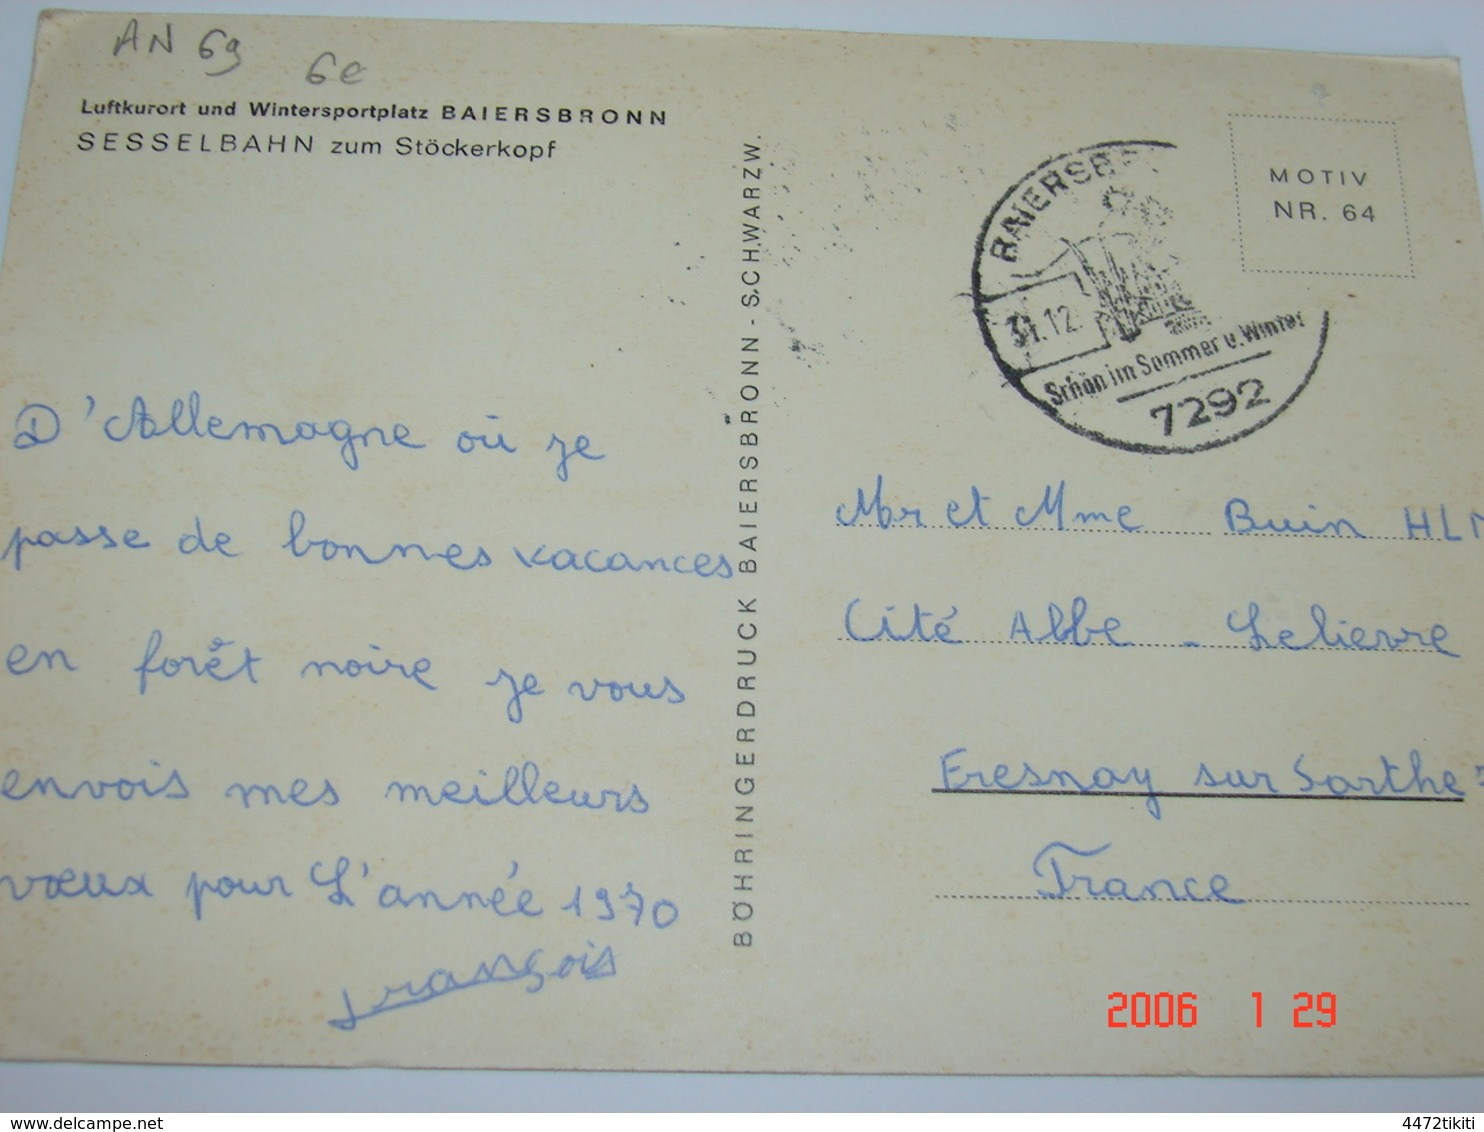 AN 69 6e
Luftkurort und Wintersportplatz BAIERSBRONN
SESSELBAHN zum Stöckerkopf
D'Allemagne où je
passe de bonnes vacances
en forêt noire je vous
envois mes meilleurs
vœux pour L'année 1970
François
BÖHRINGERDRUCK BAIERSBRONN - SCHWARZW.
MOTIV
NR. 64
BAIERSB
31.12
Schön im Sommer u. Winter
7292
Mr et Mme Buin HLM
Cité Abbe - Lelievre
Fresnay sur Sarthe
France
2006 1 29
www.delcampe.net
4472tikiti